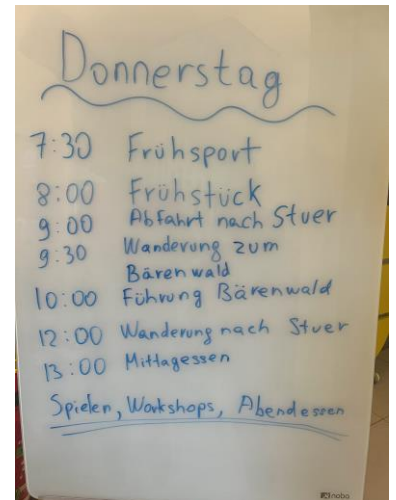 Donnerstag
7:30 Frühsport
8:00 Frühstück
9:00 Abfahrt nach Stuer
9:30 Wanderung zum
Bärenwald
10:00 Führung Bärenwald
12:00 Wanderung nach Stuer
13:00 Mittagessen
Spielen, Workshops, Abendessen
nobo